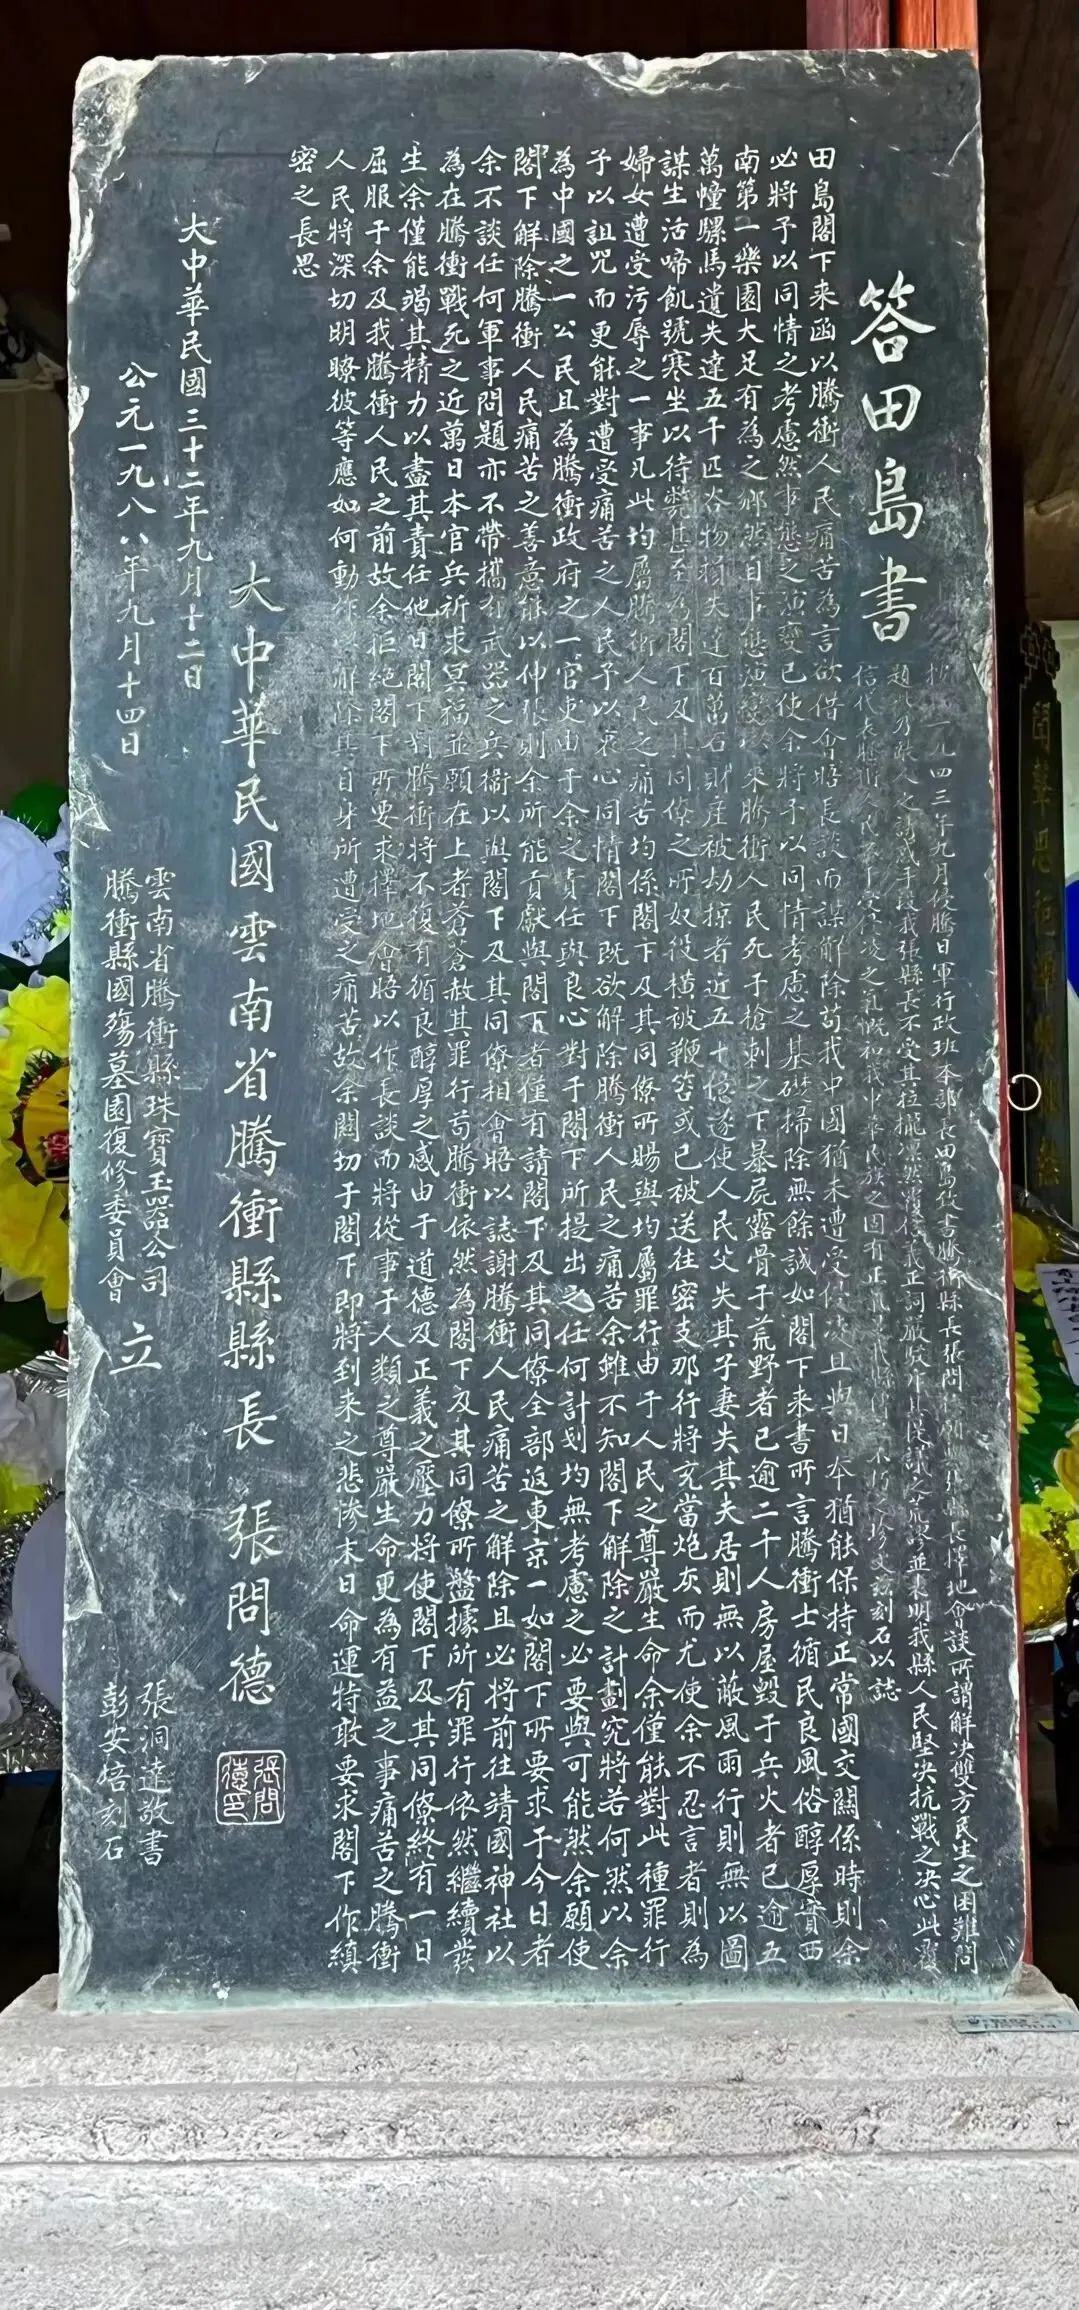 答田島書
一九四三年九月侵騰日軍行政班本部長田島致書騰衝縣長張問 願與張縣長擇地會談所謂解決雙方民生之困難問
題此乃敵人之誘惑手段我張縣長不受其拉攏凜然覆信義正詞嚴駁斥其 之荒謬並表明我縣人民堅決抗戰之決心此覆
信代表騰衝人民不 受 凌之氣慨和我中華民族之固有正氣是 不朽之珍文茲刻石以誌
田島閣下来函以騰衝人民痛苦為言欲借會晤長談而謀解除苟我中國猶未遭受侵凌且與日本猶能保持正常國交關係時則余
必將予以同情之考慮然事態之演變已使余將予以同情考慮之基礎掃除無餘誠如閣下来書所言騰衝士循民良風俗醇厚實西
南第一樂園大足有為之鄉然自事態演變以来騰衝人民死于槍刺之下暴屍露骨于荒野者已逾二千人房屋毀于兵火者已逾五
萬幢騾馬遺失達五千匹谷物損失達百萬石財產被劫掠者近五十億遂使人民父失其子妻失其夫居則無以蔽風雨行則無以圖
謀生活啼飢號寒坐以待斃甚至為閣下及其同僚之所奴役橫被鞭笞或已被送往密支那行將充當炮灰而尤使余不忍言者則為
婦女遭受污辱之一事凡此均屬騰衝人民之痛苦均係閣下及其同僚所賜與均屬罪行由于人民之尊嚴生命余僅能對此種罪行
予以詛咒而更能對遭受痛苦之人民予以衷心同情閣下既欲解除騰衝人民之痛苦余雖不知閣下解除之計劃究將若何然以余
為中國之一公民且為騰衝政府之一官吏由于余之責任與良心對于閣下所提出之任何計划均無考慮之必要與可能然余願使
閣下解除騰衝人民痛苦之善意能以伸張則余所能貢獻與閣下者僅有請閣下及其同僚全部返東京一如閣下所要求于今日者
余不談任何軍事問題亦不帶攜有武器之兵衛以與閣下及其同僚相會晤以誌謝騰衝人民痛苦之解除且必將前往靖國神社以
為在騰衝戰死之近萬日本官兵祈求冥福並願在上者蒼蒼赦其罪行苟騰衝依然為閣下及其同僚所盤據所有罪行依然繼續發
生余僅能竭其精力以盡其責任他日閣下對騰衝將不復有循良醇厚之感由于道德及正義之壓力將使閣下及其同僚終有一日
屈服于余及我騰衝人民之前故余拒絕閣下所要求擇地會晤以作長談而將從事于人類之尊嚴生命更為有益之事痛苦之騰衝
人民將深切明瞭彼等應如何動作以解除其自身所遭受之痛苦故余關切于閣下即將到来之悲慘末日命運特敢要求閣下作縝
密之長思
大中華民國雲南省騰衝縣縣長張問德
張問德印
大中華民國三十二年九月十二日
公元一九八八年九月十四日
雲南省騰衝縣珠寶玉器公司
騰衝縣國殤墓園復修委員會
立
張洞達敬書
彭安培刻石